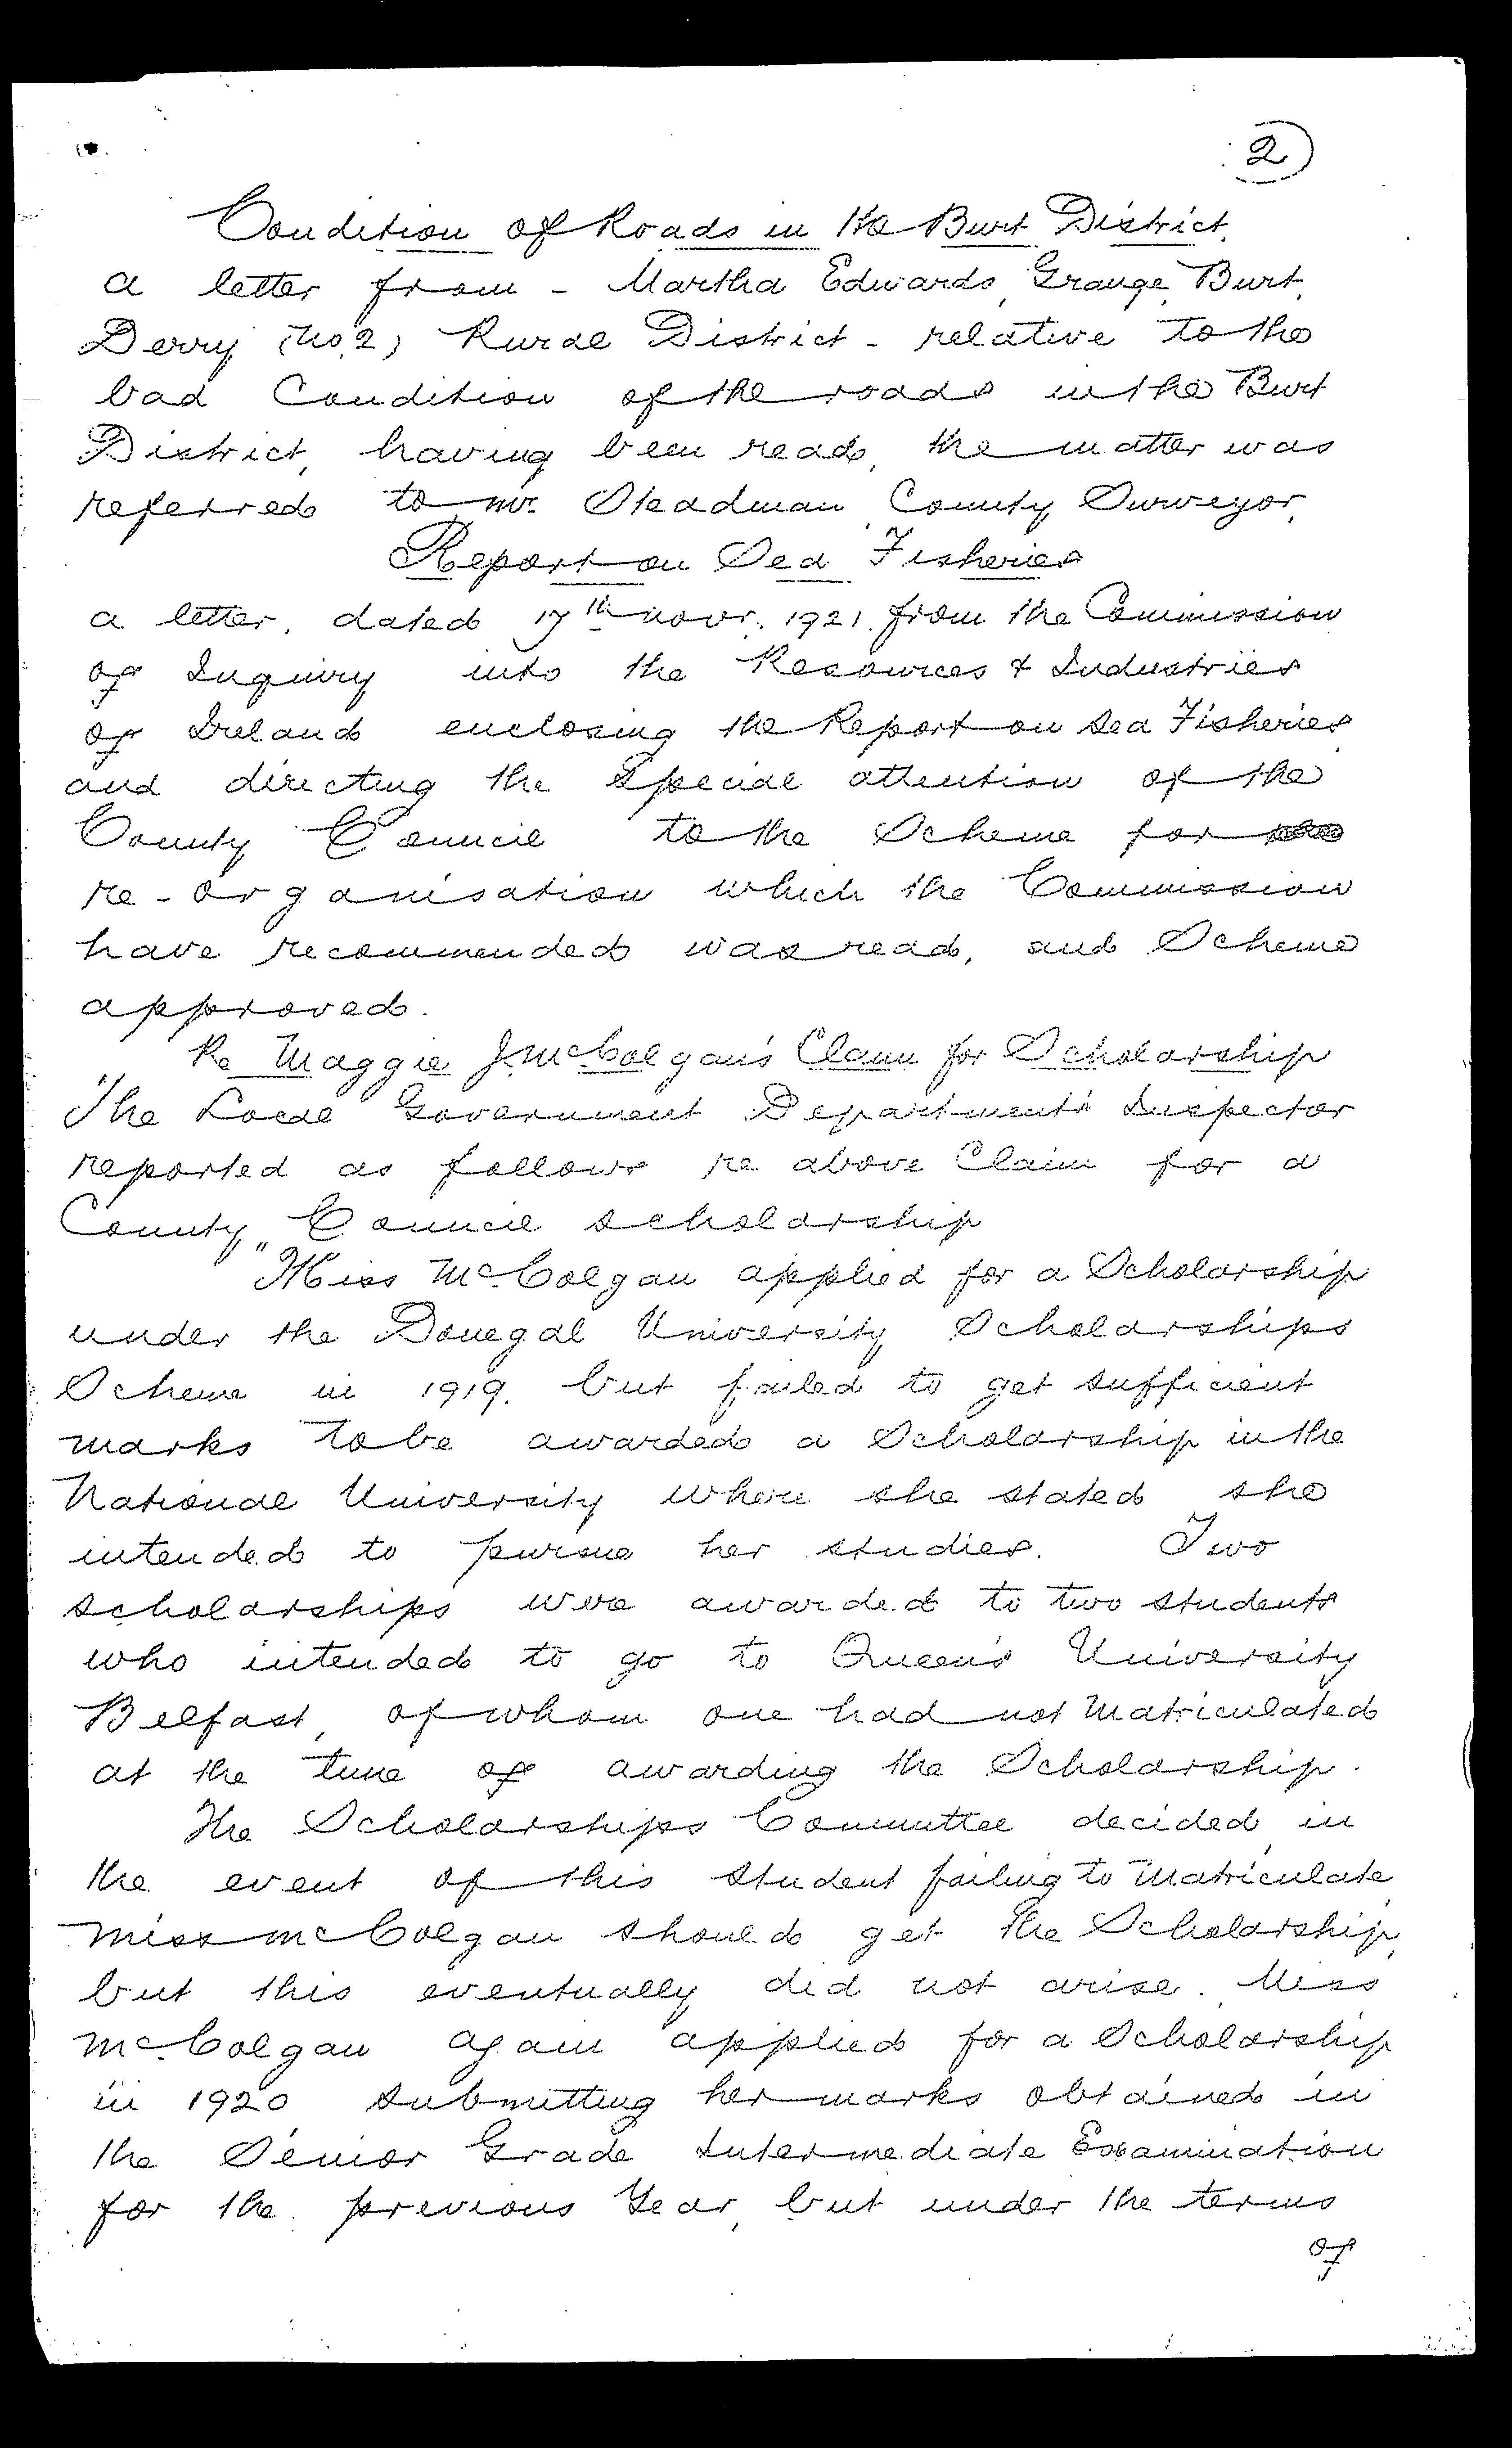 2
Condition of Roads in the Burt District.
a letter from - Martha Edwards, Grange, Burt,
Derry (No. 2) Rural District - relative to the
bad Condition of the roads in the Burt
District, having been read, the matter was
referred to Mr. Steadman, County Surveyor.
Report on Sea Fisheries
a letter, dated 17th Novr. 1921. from the Commission
of Inquiry into the Resources & Industries
of Ireland enclosing the Report on Sea Fisheries
and directing the Special attention of the
County Council to the Scheme for
re-organisation which the Commission
have recommended was read, and Scheme
approved.
Re Maggie J. McColgan's Claim for Scholarship
The Local Government Department's Inspector
reported as follows re above Claim for a
County Council scholarship
"Miss McColgan applied for a Scholarship
under the Donegal University Scholarships
Scheme in 1919. but failed to get sufficient
marks to be awarded a Scholarship in the
National University where she stated she
intended to pursue her studies. Two
scholarships were awarded to two students
who intended to go to Queen's University
Belfast, of whom one had not Matriculated
at the time of awarding the Scholarship.
The Scholarships Committee decided in
the event of this student failing to Matriculate
Miss McColgan should get the Scholarship,
but this eventually did not arise. Miss
McColgan again applied for a Scholarship
in 1920, submitting her marks obtained in
the Senior Grade Intermediate Examination
for the previous Year, but under the terms
of